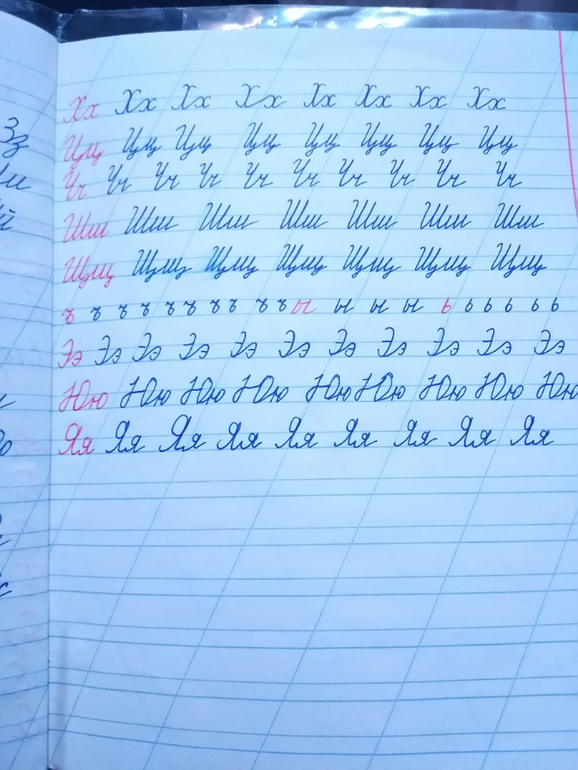 Хх Хх Хх Хх Хх Хх Хх Хх
Цц Цц Цц Цц Цц Цц Цц Цц
Чч Чч Чч Чч Чч Чч Чч Чч Чч
Шш Шш Шш Шш Шш Шш Шш
Щщ Щщ Щщ Щщ Щщ Щщ Щщ
ъ ъ ъ ъ ъ ъ ъ ъ ъ ъ ы ы ы ы ь ь ь ь ь ь
Ээ Ээ Ээ Ээ Ээ Ээ Ээ Ээ Ээ Ээ
Юю Юю Юю Юю Юю Юю Юю Юю Юю
Яя Яя Яя Яя Яя Яя Яя Яя Яя
Зз